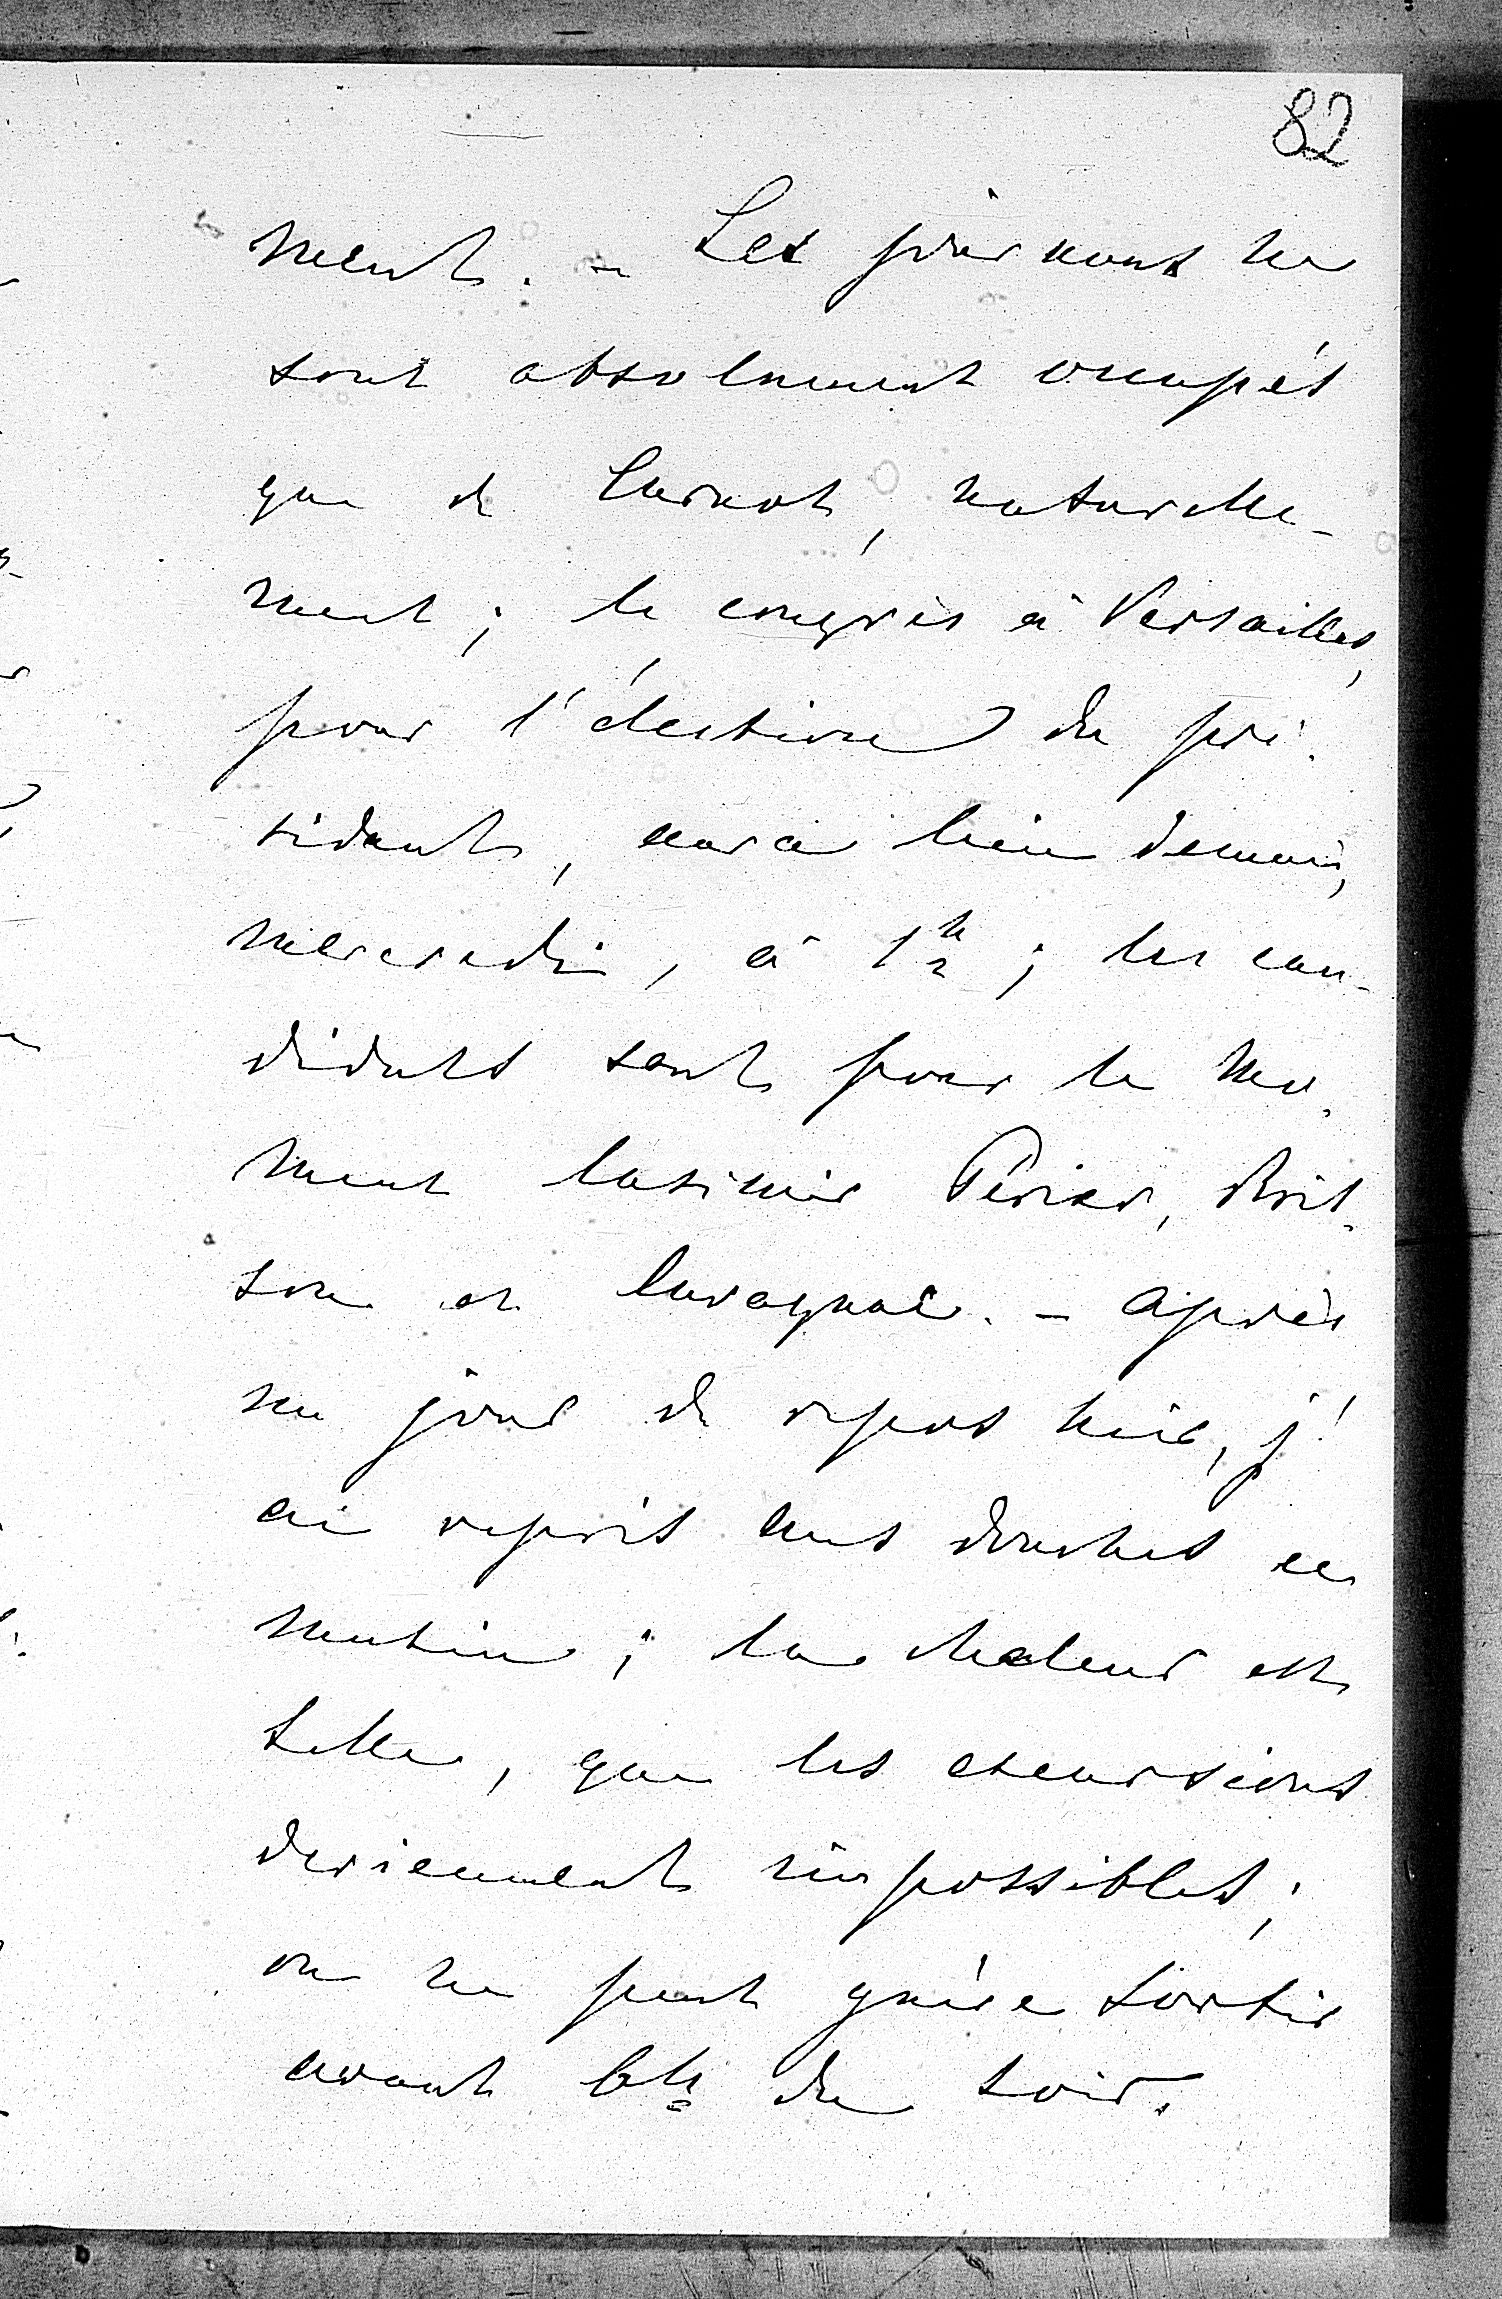 82
ment. – Les journaux ne
sont absolument occupés
que de Carnot, naturelle-
ment ; le congrès à Versailles,
pour l'élection du pré-
sident, aura lieu demain,
mercredi, à 1h ; les can-
didats sont pour le mo-
ment Casimir Périer, Bris-
son et Cavagnac. – Après
un jour de repos hier, j'
ai repris mes douches ce
matin ; la chaleur est
telle, que les excursions
deviennent impossibles ;
on ne peut guère sortir
avant 6h du soir.